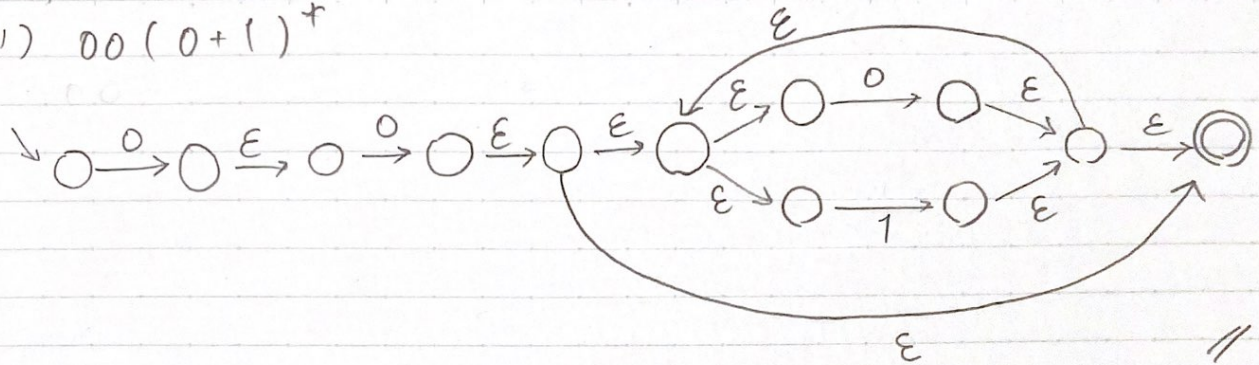 1) 00(0+1)⁺
ε
0 ε 0 ε ε ε 0 ε ε
ε 1 ε
ε //